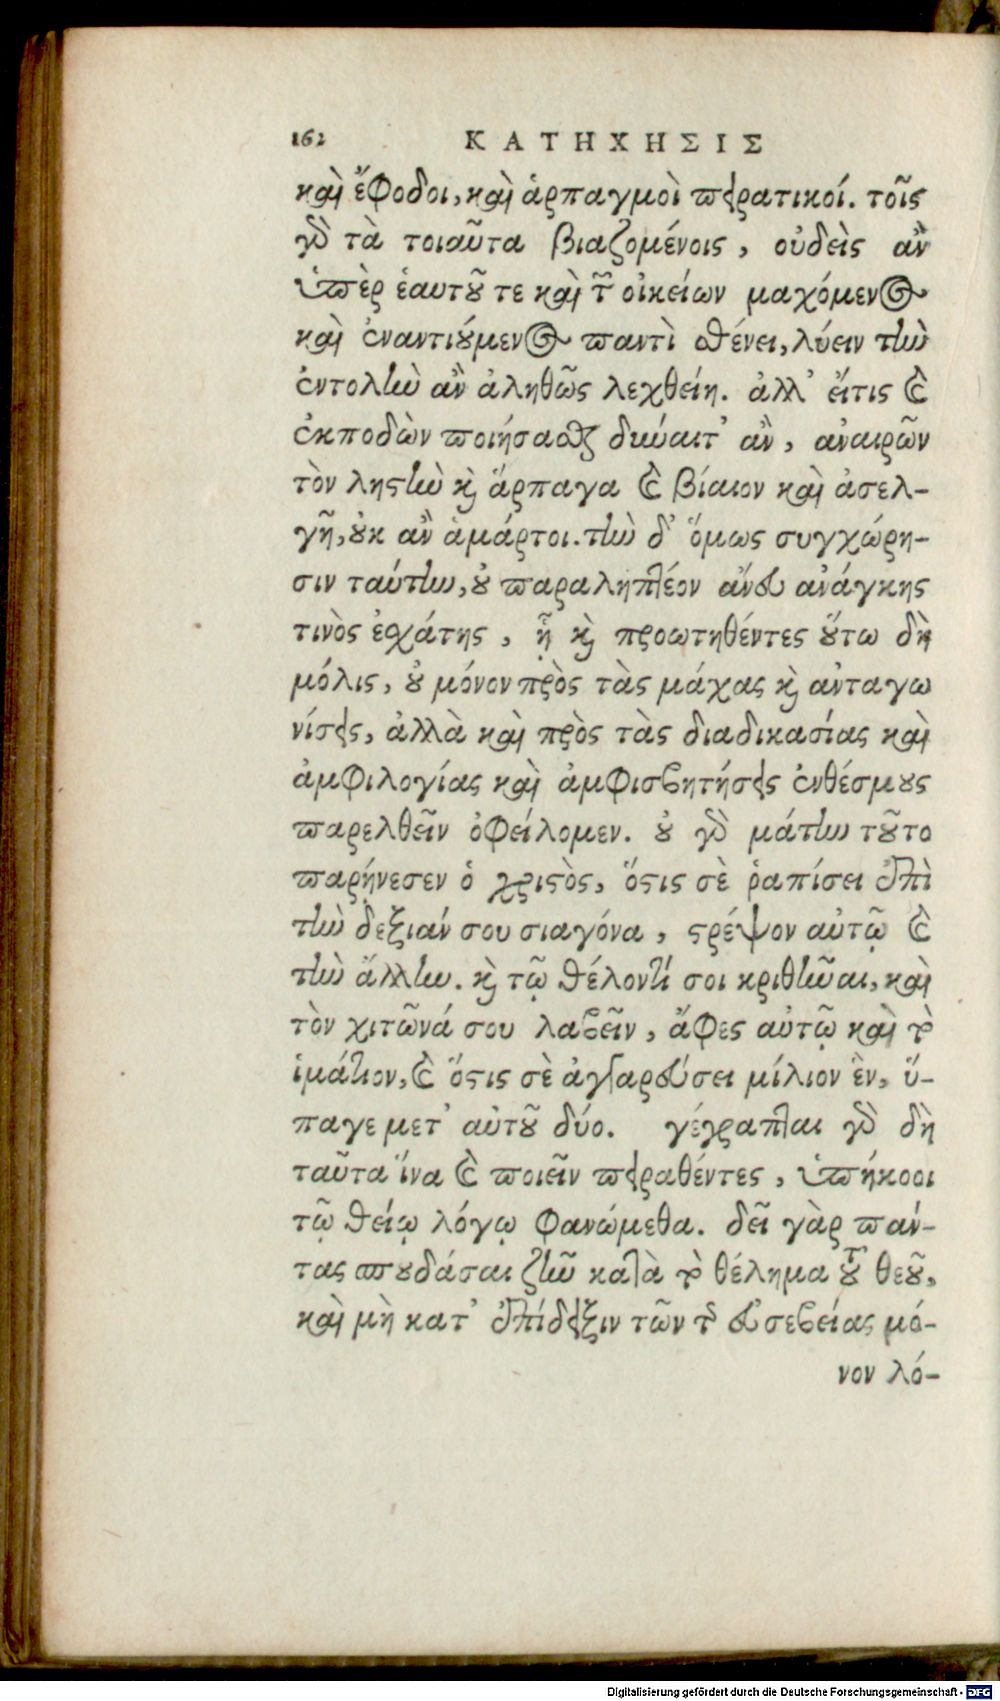 162 ΚΑΤΗΧΗΣΙΣ
καὶ ἔφοδοι, καὶ ἁρπαγμοὶ πειρατικοί. τοῖς
γὰρ τὰ τοιαῦτα βιαζομένοις, οὐδεὶς ἂν
ὑπὲρ ἑαυτοῦ τε καὶ τῶν οἰκείων μαχόμενος
καὶ ἐναντιούμενος παντὶ σθένει, λύειν τὴν
ἐντολὴν ἂν ἀληθῶς λεχθείη. ἀλλ' εἴτις καὶ
ἐκποδὼν ποιήσασθαι δύναιτ' ἂν, ἀναιρῶν
τὸν ληστὴν καὶ ἅρπαγα καὶ βίαιον καὶ ἀσελ-
γῆ, οὐκ ἂν ἁμάρτοι. τὴν δ' ὅμως συγχώρη-
σιν ταύτην, οὐ παραληπτέον ἄνευ ἀνάγκης
τινὸς ἐσχάτης, ᾗ καὶ προωτηθέντες οὕτω δὴ
μόλις, οὐ μόνον πρὸς τὰς μάχας καὶ ἀνταγω
νίσεις, ἀλλὰ καὶ πρὸς τὰς διαδικασίας καὶ
ἀμφιλογίας καὶ ἀμφισβητήσεις ἐνθέσμους
παρελθεῖν ὀφείλομεν. οὐ γὰρ μάτην τοῦτο
παρῄνεσεν ὁ χριστὸς, ὅστις σὲ ῥαπίσει ἐπὶ
τὴν δεξιάν σου σιαγόνα, στρέψον αὐτῷ καὶ
τὴν ἄλλην. καὶ τῷ θέλοντί σοι κριθῆναι, καὶ
τὸν χιτῶνά σου λαβεῖν, ἄφες αὐτῷ καὶ τὸ
ἱμάτιον, καὶ ὅστις σὲ ἀγγαρεύσει μίλιον ἓν, ὕ-
παγε μετ' αὐτοῦ δύο. γέγραπται γὰρ δὴ
ταῦτα ἵνα καὶ ποιεῖν πειραθέντες, ὑπήκοοι
τῷ θείῳ λόγῳ φανώμεθα. δεῖ γὰρ πάν-
τας σπουδάσαι ζῆν κατὰ τὸ θέλημα τοῦ θεοῦ,
καὶ μὴ κατ' ἐπίδειξιν τῶν τῆς εὐσεβείας μό-
νον λό-
Digitalisierung gefördert durch die Deutsche Forschungsgemeinschaft - DFG